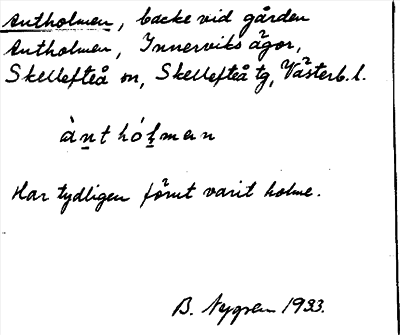 Antholmen, backe vid gården
Antholmen, Innerviks ägor,
Skellefteå sn, Skellefteå tg, Västerb. l.
ànthólman
Har tydligen förut varit holme.
B. Nygren 1933.